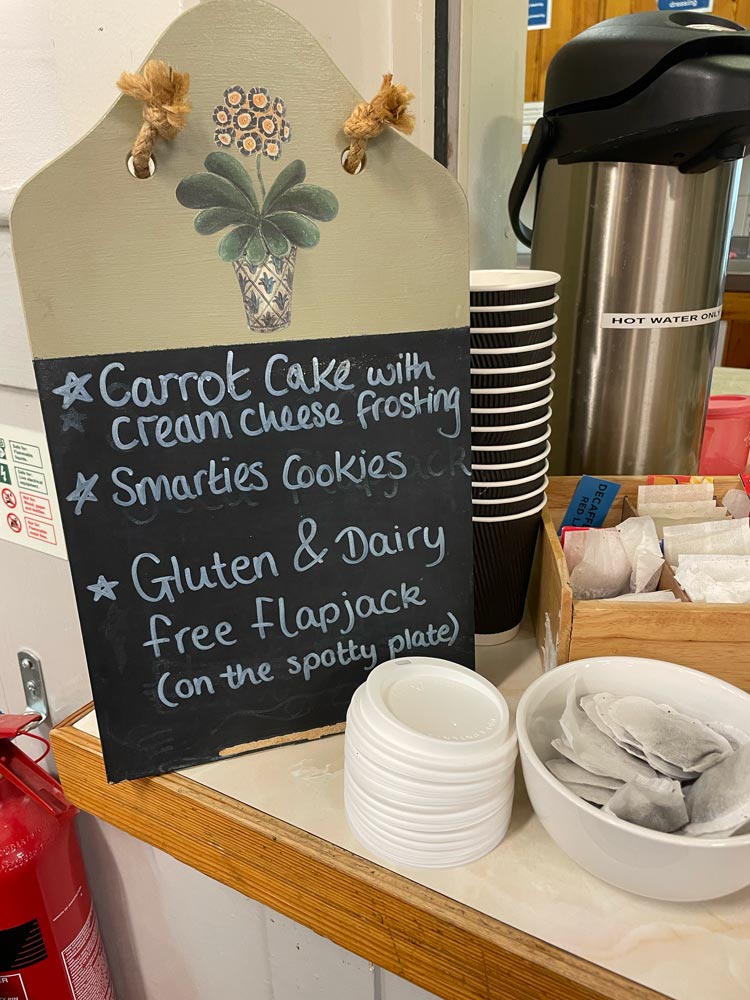 dressing
HOT WATER ONLY
☆ Carrot Cake with
cream cheese frosting
☆ Smarties Cookies
☆ Gluten & Dairy
free flapjack
(on the spotty plate)
DECAFF
RED